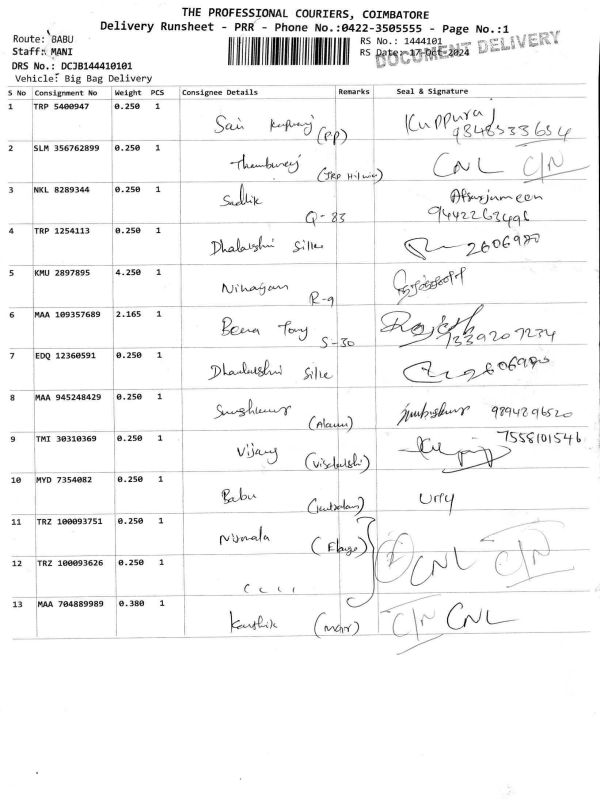 THE PROFESSIONAL COURIERS, COIMBATORE
Delivery Runsheet - PRR - Phone No.:0422-3505555 - Page No.:1
Route: BABU
RS No.: 1444101
DOCUMENT DELIVERY
Staff: MANI
RS Date:-17-Oct-2024
DRS No.: DCJB144410101
Vehicle: Big Bag Delivery
S No Consignment No Weight PCS Consignee Details Remarks Seal & Signature
1 TRP 5400947 0.250 1 Sai (RP) Kuppuraj 9848533654
2 SLM 356762899 0.250 1 CNL C/N
3 NKL 8289344 0.250 1 Sadhik Q-83 9442263496
4 TRP 1254113 0.250 1 2606980
5 KMU 2897895 4.250 1 R-9
6 MAA 109357689 2.165 1 Beena Tony S-30 Rajesh 7339207234
7 EDQ 12360591 0.250 1
8 MAA 945248429 0.250 1 9894296520
9 TMI 30310369 0.250 1 Vijay 7558101546
10 MYD 7354082 0.250 1 Babu
11 TRZ 100093751 0.250 1 Nirmala CNL C/N
12 TRZ 100093626 0.250 1
13 MAA 704889989 0.380 1 Karthik C/N CNL